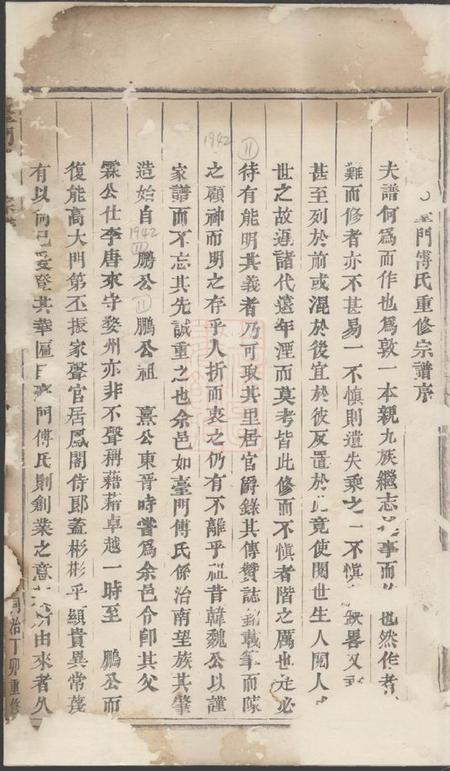 門傅氏重修宗譜序
夫譜何爲而作也爲敦一本親九族繼志 事而 也然作者
難而修者亦不甚易一不慎則遺失乘之一不慎 缺畧又
甚至列於前或混於後宜於彼反置於 竟使閱世生人閱人
世之故遂諸代遠年湮而莫考皆此修而不慎者階之厲也 必
待有能明其義者乃可取其里居官爵錄其傳贊誌 載筆而 
之顧神而明之存乎人折而衷之仍有不離乎祖昔韓魏公以謹
家譜而不忘其先誠重之也余邑如臺門傅氏係治南望族其肇
造始自 鵬公 鵬公祖 熹公東晋時嘗爲余邑令卽其父
霖公仕李唐來守婺州亦非不聲稱藉藉卓越一時至 鵬公而
復能高大門第丕振家聲官居鳳閣侍郎蓋彬彬乎顯貴異常蓰
有以 受登其華區 門傅氏則創業之意 由來者久
治丁卯重修
1942
11
1942
11
11